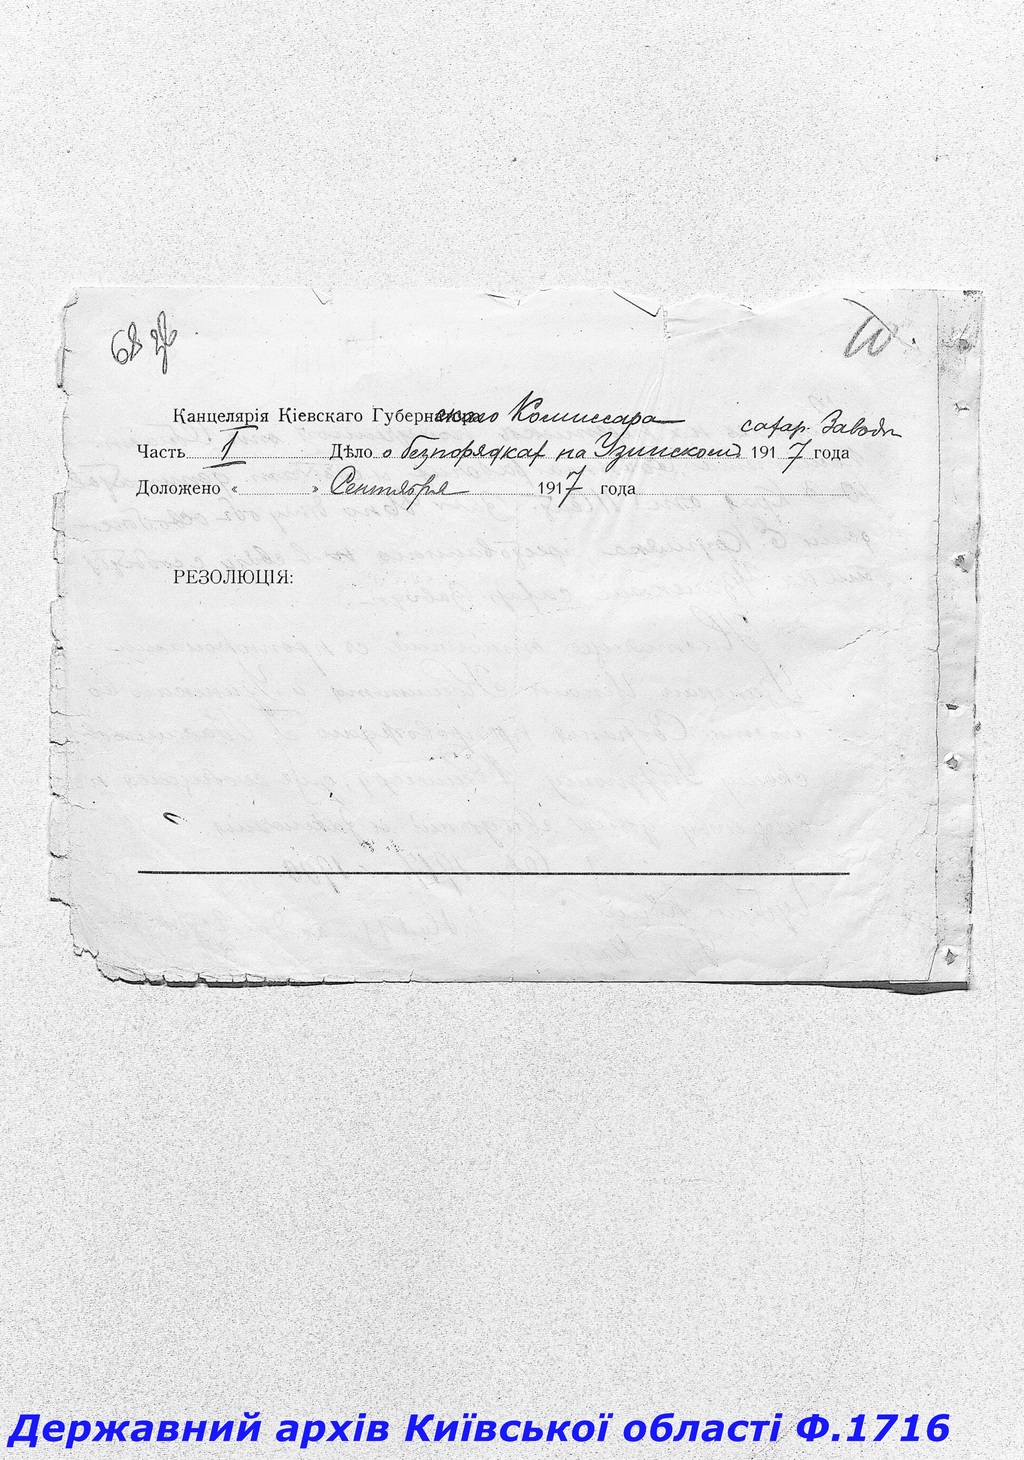 68
Канцелярія Кіевскаго Губернскаго Комиссара
сахар. Заводѣ
Часть I Дѣло о безпорядках на Узинском 1917 года
Доложено « » Сентября 1917 года
РЕЗОЛЮЦІЯ:
Державний архів Київської області Ф.1716